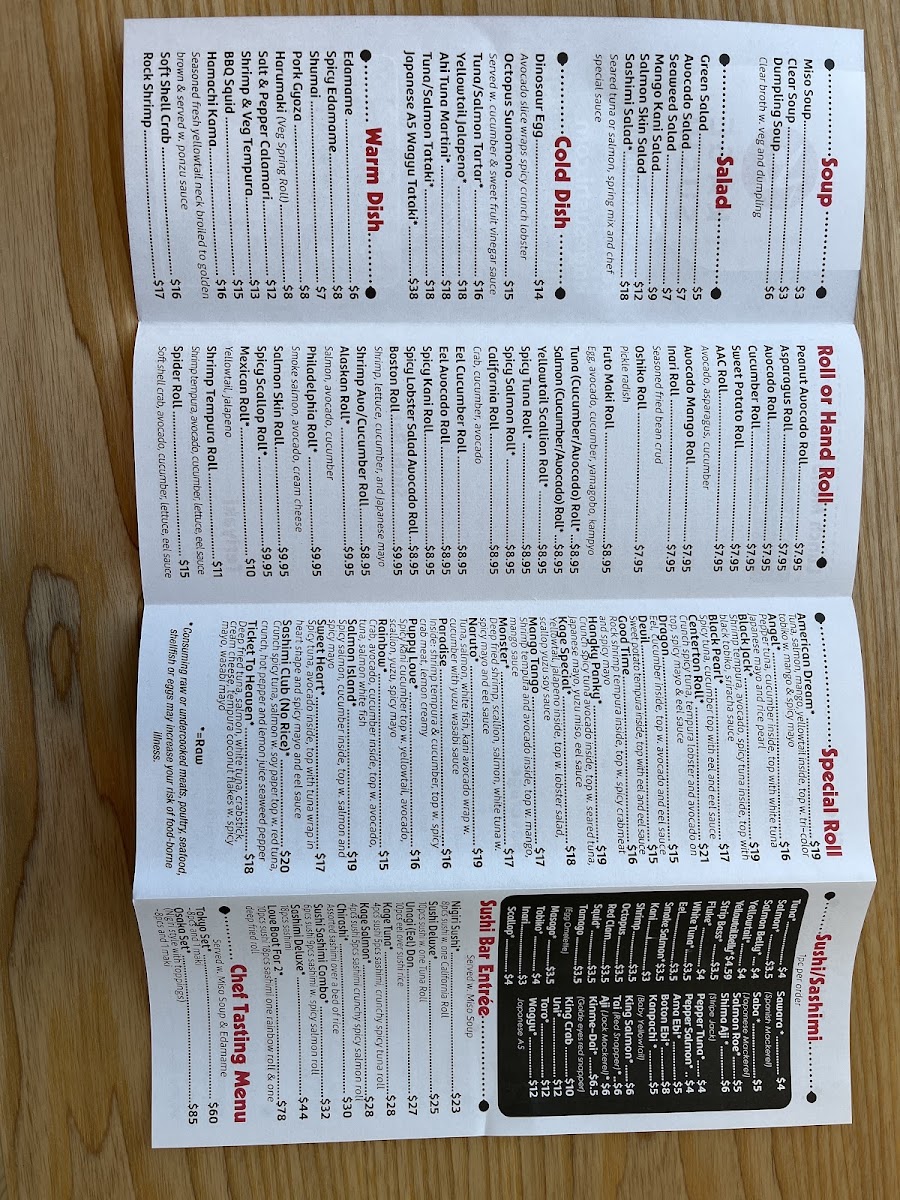 Soup
Miso Soup $3
Clear Soup $3
Dumpling Soup $6
Clear broth w. veg and dumpling
Salad
Green Salad $5
Avocado Salad $7
Seaweed Salad $7
Mango Kani Salad $9
Salmon Skin Salad $12
Sashimi Salad* $18
Seared tuna or salmon, spring mix and chef
special sauce
Cold Dish
Dinosaur Egg $14
Avocado slice wraps spicy crunch lobster
Octopus Sunomono $15
Served w. cucumber & sweet fruit vinegar sauce
Tuna/Salmon Tartar* $16
Yellowtail Jalapeno* $18
Ahi Tuna Martini* $18
Tuna/Salmon Tataki* $18
Japanese A5 Wagyu Tataki* $38
Warm Dish
Edamame $6
Spicy Edamame $8
Shumai $7
Pork Gyoza $8
Harumaki (Veg Spring Roll) $8
Salt & Pepper Calamari $12
Shrimp & Veg Tempura $13
BBQ Squid $15
Hamachi Kama $16
Seasoned fresh yellowtail neck broiled to golden
brown & served w. ponzu sauce
Soft Shell Crab $16
Rock Shrimp $17
Roll or Hand Roll
Peanut Avocado Roll $7.95
Asparagus Roll $7.95
Avocado Roll $7.95
Cucumber Roll $7.95
Sweet Potato Roll $7.95
AAC Roll $7.95
Avocado, asparagus, cucumber
Avocado Mango Roll $7.95
Inari Roll $7.95
Seasoned fried bean crud
Oshiko Roll $7.95
Pickle radish
Futo Maki Roll $8.95
Egg, avocado, cucumber, yamagobo, kampyo
Tuna (Cucumber/Avocado) Roll* $8.95
Salmon (Cucumber/Avocado) Roll* $8.95
Yellowtail Scallion Roll* $8.95
Spicy Tuna Roll* $8.95
Spicy Salmon Roll* $8.95
California Roll $8.95
Crab, cucumber, avocado
Eel Cucumber Roll $8.95
Eel Avocado Roll $8.95
Spicy Kani Roll $8.95
Spicy Lobster Salad Avocado Roll $8.95
Boston Roll $9.95
Shrimp, lettuce, cucumber, and Japanese mayo
Shrimp Avo/Cucumber Roll $8.95
Alaskan Roll* $8.95
Salmon, avocado, cucumber
Philadelphia Roll* $9.95
Smoke salmon, avocado, cream cheese
Salmon Skin Roll $9.95
Spicy Scallop Roll* $9.95
Mexican Roll* $10
Yellowtail, jalapeno
Shrimp Tempura Roll $11
Shrimp tempura, avocado, cucumber, lettuce, eel sauce
Spider Roll $15
Soft shell crab, avocado, cucumber, lettuce, eel sauce
Special Roll
American Dream* $19
Tuna, salmon, mango, yellowtail inside, top w. tri-color
tobiko w. mango & spicy mayo
Angel* $16
Pepper tuna, cucumber inside, top with white tuna
Japanese mayo and rice pearl
Black Jack* $19
Shrimp tempura, avocado, spicy tuna inside, top with
black tobiko, sriracha sauce
Black Pearl* $17
Spicy tuna, cucumber top with eel and eel sauce
Centerton Roll* $21
Crunch spicy tuna, tempura lobster and avocado on
top w. spicy mayo & eel sauce
Dragon $15
Eel, cucumber inside, top w. avocado and eel sauce
Deman $15
Sweet potato tempura inside, top with eel and eel sauce
Good Time $16
Rock shrimp tempura inside, top w. spicy crabmeat
and spicy mayo
Hangky Panky* $19
Crunch spicy tuna avocado inside, top w. seared tuna,
Japanese mayo, yuzu miso, eel sauce
Kage Special* $18
Yellowtail, jalapeno inside, top w. lobster salad,
scallop yuzu soy sauce
Mango Tango $17
Shrimp tempura and avocado inside, top w. mango,
mango sauce
Monster* $17
Deep fried shrimp, scallion, salmon, white tuna w.
spicy mayo and eel sauce
Naruto $19
Tuna, salmon, white fish, kani, avocado wrap w.
cucumber with yuzu wasabi sauce
Paradise $16
Inside: shrimp tempura & cucumber, top w. spicy
crab meat, lemon creamy
Puppy Love* $16
Spicy kani cucumber top w. yellowtail, avocado,
scallion, yuzu, spicy mayo
Rainbow* $15
Crab, avocado, cucumber inside, top w. avocado,
tuna, salmon, white fish
Salmon Island* $19
Spicy salmon, cucumber inside, top w. salmon and
spicy mayo
Sweet Heart* $17
Spicy tuna, avocado inside, top with tuna wrap in
heart shape and spicy mayo and eel sauce
Sashimi Club (No Rice)* $20
Crunch spicy tuna, salmon w. soy paper top w. red tuna,
crunch, hot pepper and lemon juice seaweed pepper
Ticket To Heaven* $18
Deep fried tuna, salmon, white tuna, crabstick,
cream cheese, tempura coconut flakes w. spicy
mayo, wasabi mayo
*=Raw
*Consuming raw or undercooked meats, poultry, seafood,
shellfish or eggs may increase your risk of food-borne
illness.
Sushi/Sashimi
1pc per order
Tuna* $4
Salmon* $3.5
Salmon Belly* $4
Yellowtail* $4
Yellowtail Belly* $4.59
Strip Bass* $3.5
Fluke* $3.5
White Tuna* $4
Eel $3.5
Smoke Salmon* $3.5
Kani $3
Shrimp $3
Octopus $3.5
Red Clam $3.5
Squid* $3.5
Tamago $3.5
(Egg Omelette)
Masago* $3.5
Tobiko* $4
Inari $3
Scallop* $4
Sawara* $4
(Spanish Mackerel)
Saba* $5
(Japanese Mackerel)
Salmon Roe* $5
Shima Aji* $6
(Stripe Jack)
Pepper Tuna* $4
Pepper Salmon* $4
Ama Ebi* $5
Botan Ebi* $8
Kanpachi* $5
(Baby Yellowtail)
King Salmon* $6
Tai (Red Snapper)* $6
Aji (Jack Mackerel)* $6
Kinme-Dai* $6.5
(Golde eyes red snapper)
King Crab $10
Uni* $12
Toro* $12
Wagyu* $12
Japanese A5
Sushi Bar Entrée
Served w. Miso Soup
Nigiri Sushi* $23
8pcs sushi w. one California Roll
Sushi Deluxe* $25
10pcs sushi w. one Tuna Roll
Unagi (Eel) Don $27
10pcs eel over sushi rice
Kage Tuna* $28
4pcs sushi 5pcs sashimi, crunchy spicy tuna roll
Kage Salmon* $28
4pcs sushi 5pcs sashimi crunchy spicy salmon roll
Chirashi* $30
Assorted sashimi over a bed of rice
Sushi Sashimi Combo* $32
6pcs sushi 9pcs sashimi w. spicy salmon roll
Sashimi Deluxe* $44
18pcs sashimi
Love Boat For 2* $78
10pcs sushi 18pcs sashimi one rainbow roll & one
deep fried roll
Chef Tasting Menu
Served w. Miso Soup & Edamame
Tokyo Set* $60
~8pcs and 1 maki
Osaka Set* $85
(Nigiri style with toppings)
~8pcs and 1 maki